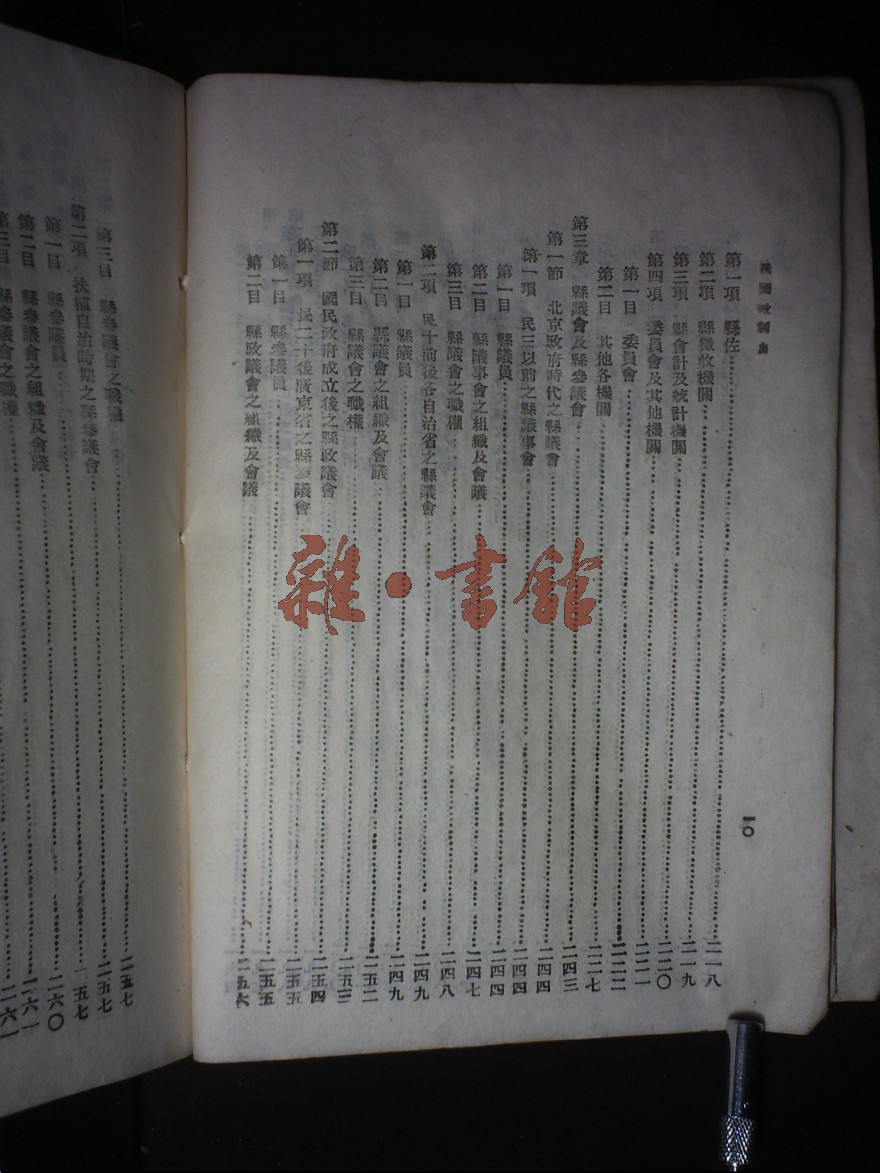 民國政制史
一〇
第一項　縣佐……二一八
第二項　縣徵收機關……二一九
第三項　縣會計及統計機關……二二〇
第四項　委員會及其他機關……二二一
第一目　委員會……二二二
第二目　其他各機關……二二七
第三章　縣議會及縣參議會……二四三
第一節　北京政府時代之縣議會……二四四
第一項　民三以前之縣議事會……二四四
第一目　縣議員……二四四
第二目　縣議事會之組織及會議……二四七
第三目　縣議會之職權……二四八
第二項　民十前後各自治省之縣議會……二四九
第一目　縣議員……二四九
第二目　縣議會之組織及會議……二五二
第三目　縣議會之職權……二五三
第二節　國民政府成立後之縣政議會……二五四
第一項　民二十後廣東省之縣參議會……二五五
第一目　縣參議員……二五五
第二目　縣政議會之組織及會議……二五六
第三目　縣參議會之職權……二五七
第二項　扶植自治時期之縣參議會……二五七
第一目　縣參議員……二六〇
第二目　縣參議會之組織及會議……二六一
第三目　縣參議會之職權……二六一
雜·書館